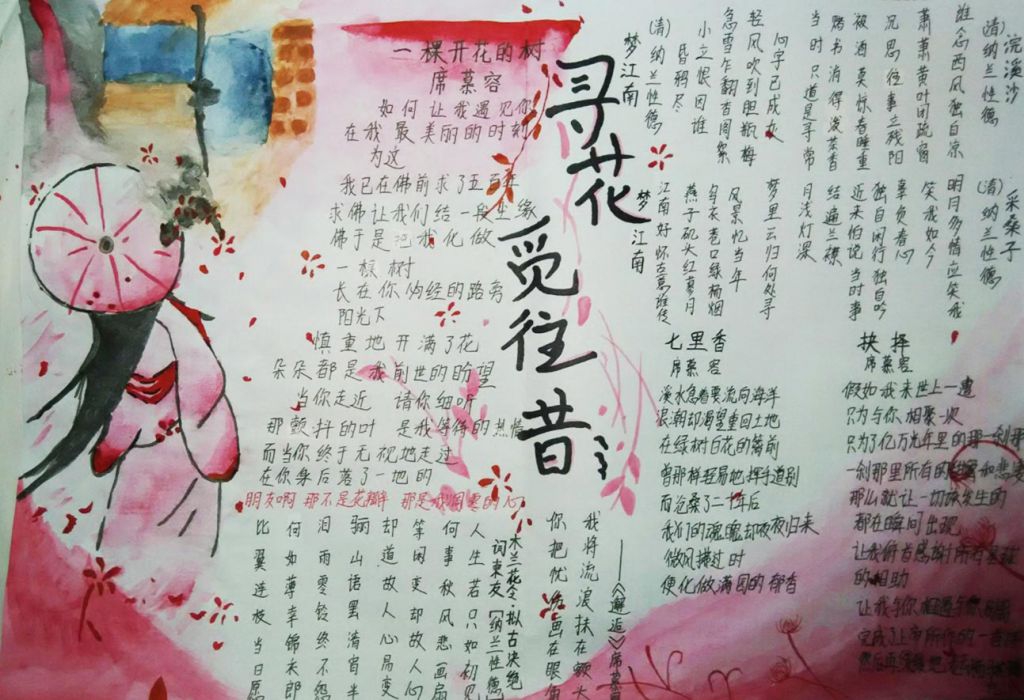 寻花
觅往昔
一棵开花的树
席慕容
如何让我遇见你
在我最美丽的时刻
为这
我已在佛前求了五百年
求佛让我们结一段尘缘
佛于是把我化做
一棵树
长在你必经的路旁
阳光下
慎重地开满了花
朵朵都是我前世的盼望
当你走近 请你细听
那颤抖的叶 是我等待的热情
而当你终于无视地走过
在你身后落了一地的
朋友啊 那不是花瓣 那是我凋零的心
浣溪沙
(清)纳兰性德
谁念西风独自凉
萧萧黄叶闭疏窗
沉思往事立残阳
被酒莫惊春睡重
赌书消得泼茶香
当时只道是寻常
梦江南
(清)纳兰性德
昏鸦尽
小立恨因谁
急雪乍翻香阁絮
轻风吹到胆瓶梅
心字已成灰
采桑子
(清)纳兰性德
明月多情应笑我
笑我如今
辜负春心
独自闲行独自吟
近来怕说当时事
结遍兰襟
月浅灯深
梦里云归何处寻
梦江南
江南好怀古
燕子矶头红蓼月
乌衣巷口绿杨烟
风景忆当年
七里香
席慕容
溪水急着要流向海洋
浪潮却渴望重回土地
在绿树白花的篱前
曾那样轻易地挥手道别
而沧桑了二十年后
我们的魂魄却夜夜归来
微风拂过时
便化做满园的郁香
抉择
席慕容
假如我来世上一遭
只为与你相聚一次
只为了亿万光年里的那一刹那
一刹那里所有的甜蜜和悲凄
那么就让一切该发生的
都在瞬间出现
让我俯首感谢所有星球
的相助
让我与你相遇与你
完成了上帝所作的一首诗
然后再缓缓地
木兰花令·拟古决绝
词柬友 (纳兰性德
人生若只如初见
何事秋风悲画扇
等闲变却故人心
却道故人心易变
骊山语罢清宵半
泪雨零铃终不怨
何如薄幸锦衣郎
比翼连枝当日愿
你把忧伤画在眼角
我将流浪抹在额头
——《邂逅》席慕容